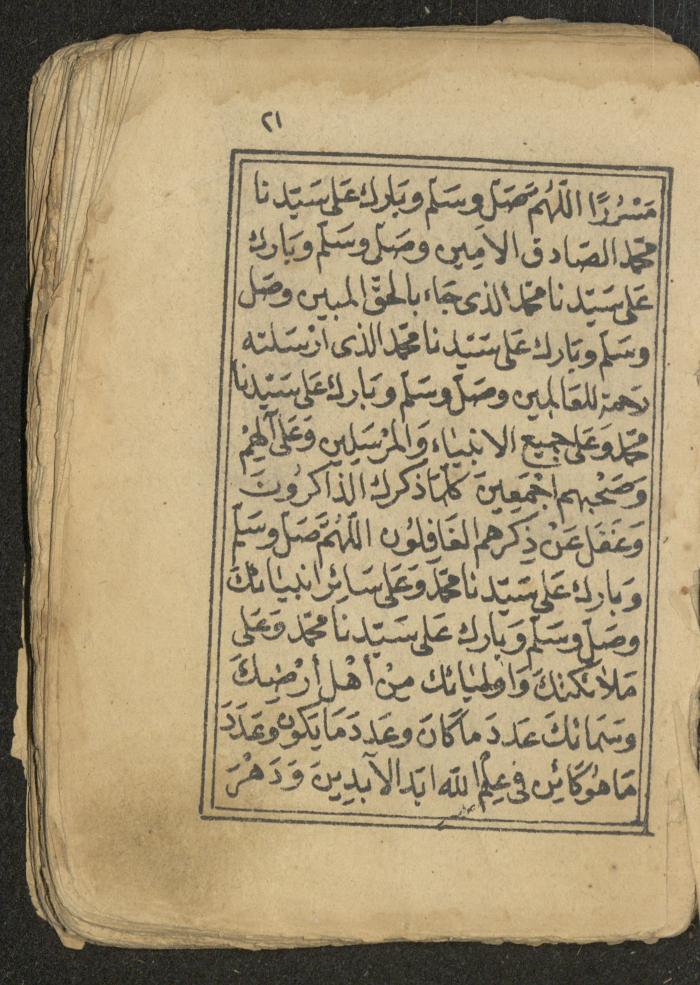 ٢١
مَسْرُورًا اللّٰهُمَّ صَلِّ وسَلِّم وبَارِك عَلى سَيّدنا
محمّد الصَادق الاَمِين وصَلّ وسَلّم وبَارك
عَلى سَيّدنا محمّد الذى جَاء بالحقّ المبين وصَل
وسَلّم وبَارك عَلى سَيّدنا محمّد الذى اَرْسَلته
رَحمة للعَالمين وصَلّ وسَلّم وبَارك عَلى سَيّدنا
محمّد وَعَلى جميع الانبيَاء وَالمرْسَلين وَعَلى آلهِمْ
وَصَحْبهم اجْمَعِينَ كلّمَا ذكرك الذاكرُونَ
وَغَفَلَ عَنْ ذِكرهم الغَافِلُون اللّٰهُمَّ صَلّ وسَلّم
وَبَارك عَلى سَيّدنا محمّد وَعَلى سَائِر انبيَائكَ
وصَلّ وسَلّم وَبَارك عَلى سَيّدنا محمّد وَعَلى
مَلَائكتكَ وَاَوليَائك مِنْ أهْل أرْضِكَ
وسَمَائكَ عَدد مَا كَانَ وعَدد مَا يَكون وعَدَدَ
مَا هُوَ كَائِن فى عِلْم اللّه ابَد الآبدِينَ وَدَهْرَ